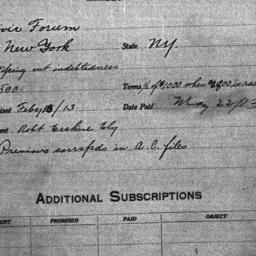 ivic Forum
New York State N.Y.
iping out indebtedness
500. Terms ½ of $1000 when $1500 is ra
ised Feby 13/13 Date Paid May 22/13
ent Robt Erskine Ely
Previous corresp'ds in A.C. files
ADDITIONAL SUBSCRIPTIONS
UNT PROMISED PAID OBJECT